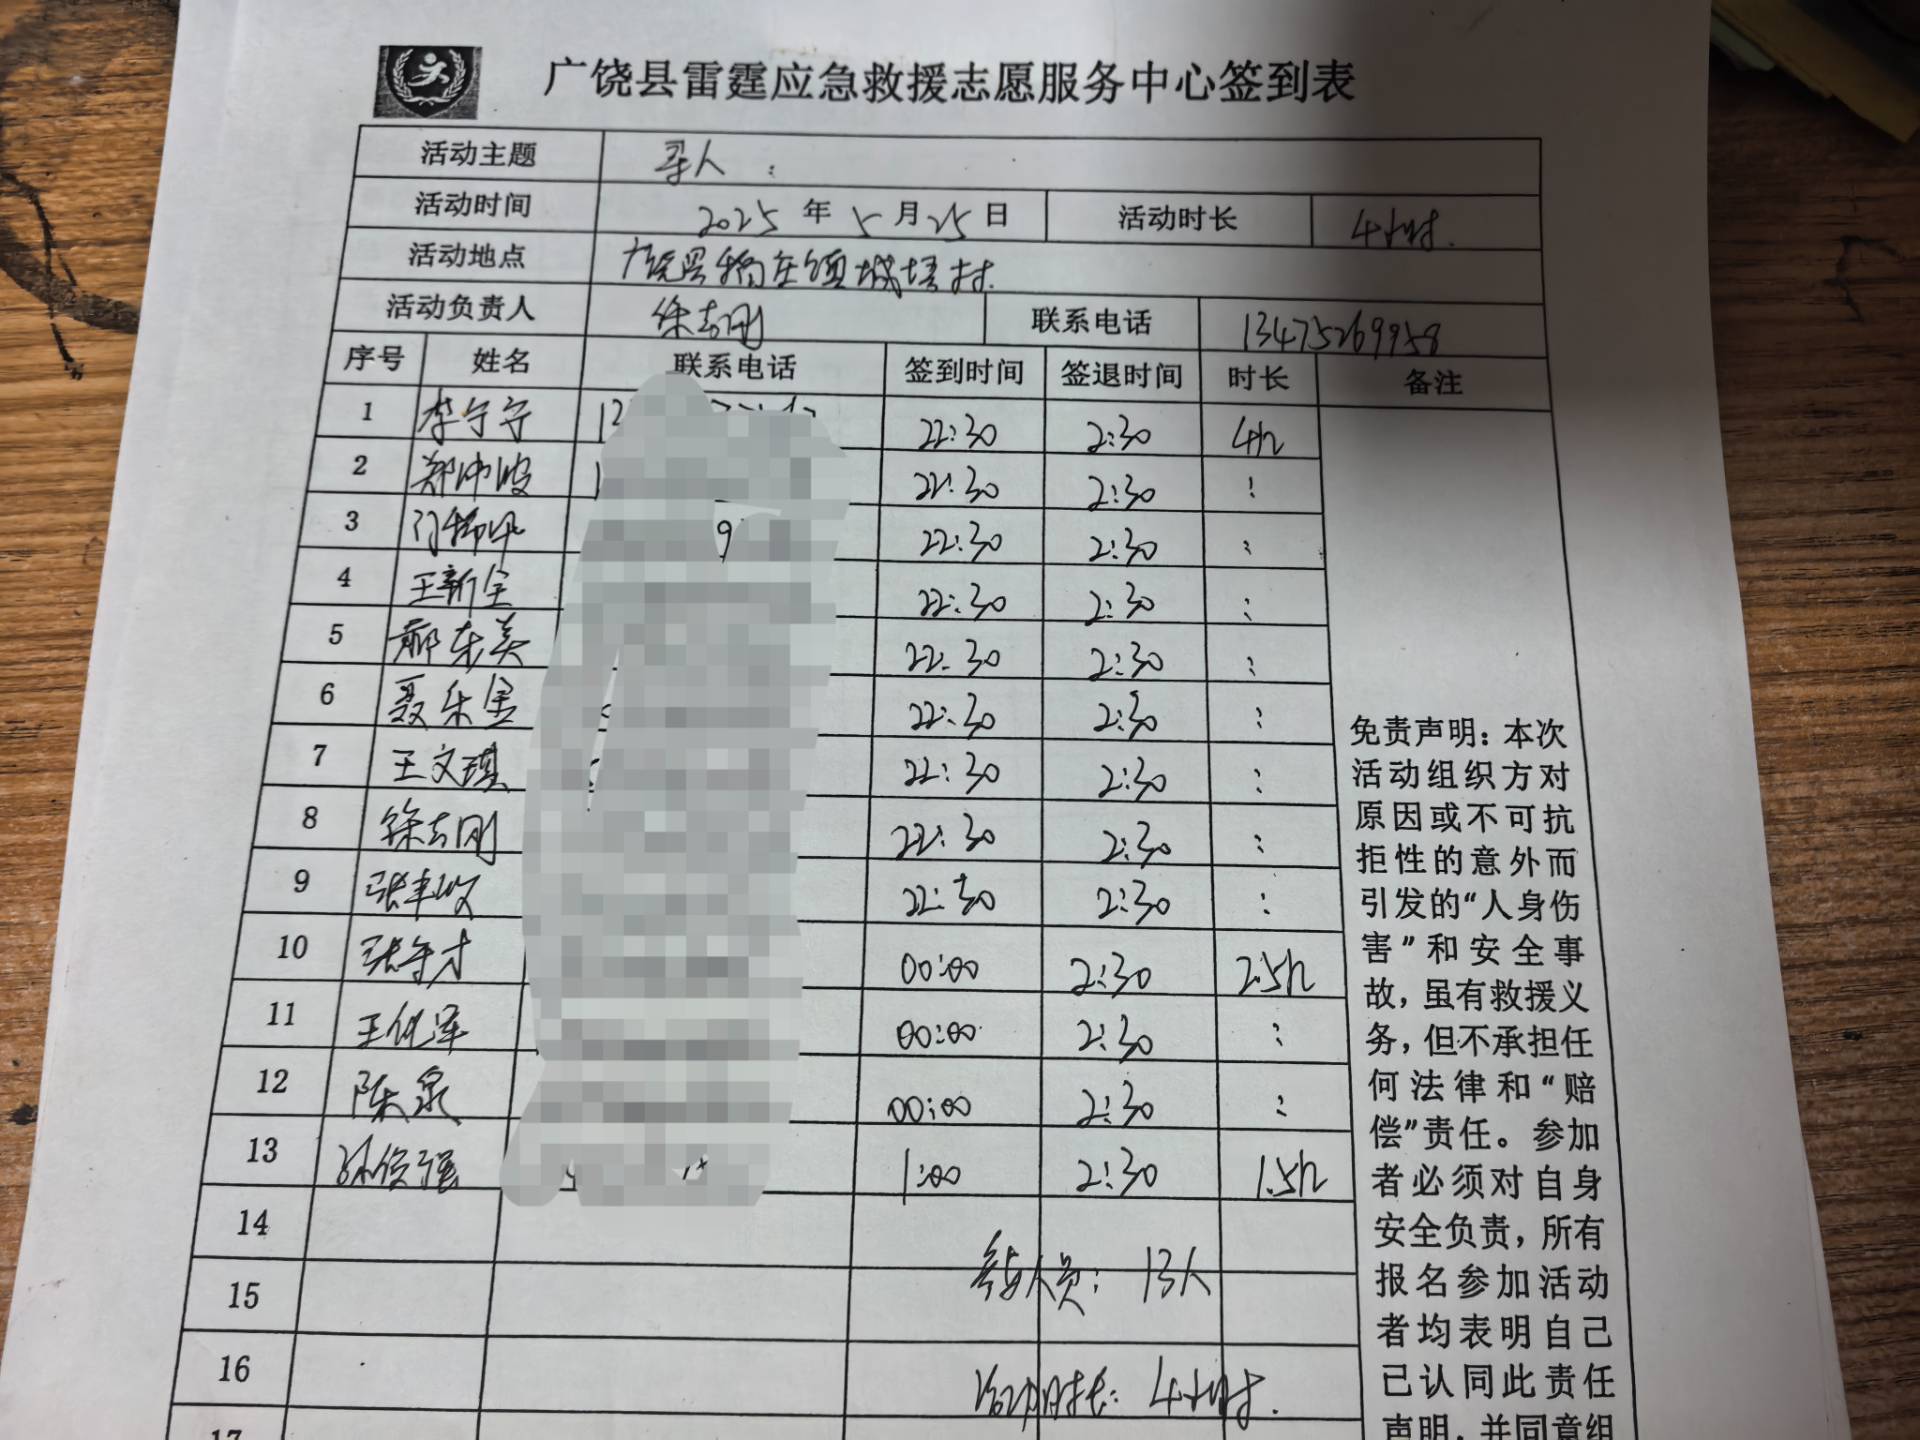 广饶县雷霆应急救援志愿服务中心签到表
活动主题 寻人:
活动时间 2025年5月25日 活动时长 4小时.
活动地点 广饶县稻庄镇城培村.
活动负责人 徐志刚 联系电话 13475269958
序号 姓名 联系电话 签到时间 签退时间 时长 备注
1 李宁宁 22:30 2:30 4h
2 22:30 2:30 :
3 22:30 2:30 :
4 王新全 22:30 2:30 :
5 郝东美 22:30 2:30 :
6 聂乐宝 22:30 2:30 :
7 王文琪 22:30 2:30 :
8 徐志刚 22:30 2:30 :
9 22:30 2:30 :
10 00:00 2:30 2.5h
11 00:00 2:30 :
12 陈泉 00:00 2:30 :
13 1:00 2:30 1.5h
14
参与人员: 13人
15
16
活动时长: 4小时.
17
免责声明:本次
活动组织方对
原因或不可抗
拒性的意外而
引发的“人身伤
害”和安全事
故,虽有救援义
务,但不承担任
何法律和“赔
偿”责任。参加
者必须对自身
安全负责,所有
报名参加活动
者均表明自己
已认同此责任
声明,并同意组